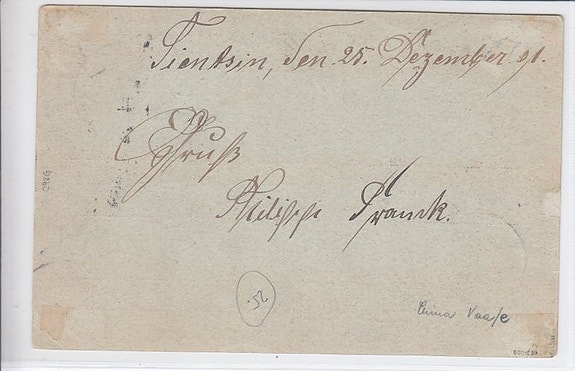 Tientsin, den 25. Dezember 91.
Gruß
Philipp Franck.
25.
China